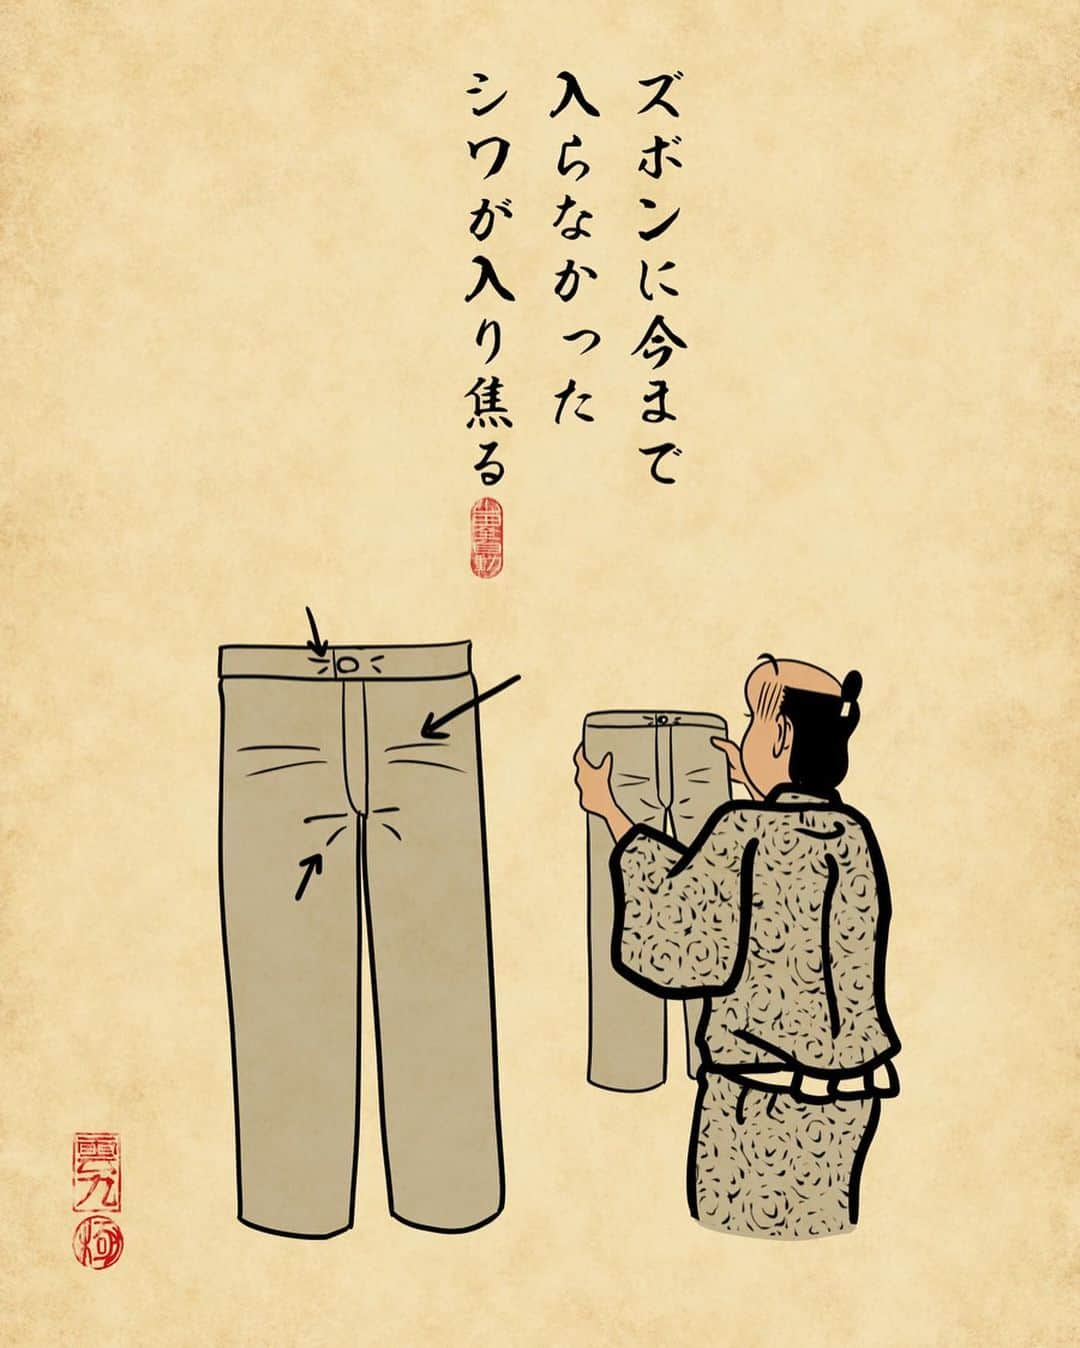 ズボンに今まで
入らなかった
シワが入り焦る